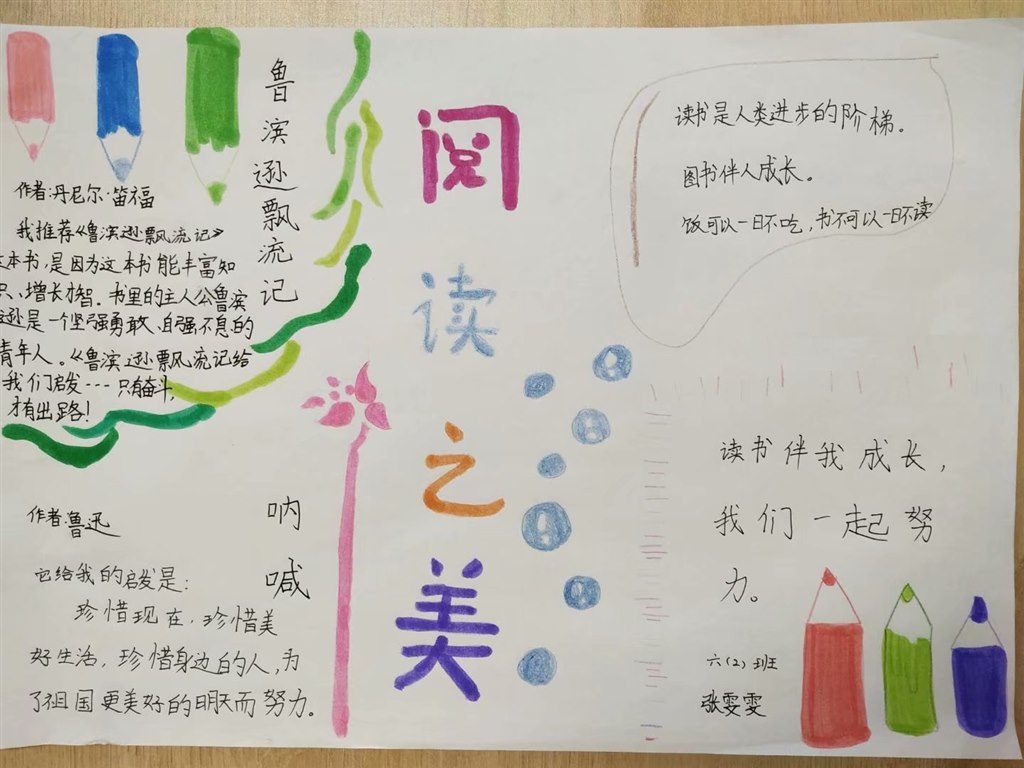 鲁滨逊飘流记
作者:丹尼尔·笛福
我推荐《鲁滨逊飘流记》
这本书,是因为这本书能丰富知
识、增长才智。书里的主人公鲁滨
逊是一个坚强勇敢、自强不息的
青年人。《鲁滨逊飘流记给
我们启发---只有奋斗,
才有出路!
呐喊
作者:鲁迅
它给我的启发是:
珍惜现在,珍惜美
好生活,珍惜身边的人,为
了祖国更美好的明天而努力。
阅读之美
读书是人类进步的阶梯。
图书伴人成长。
饭可以一日不吃,书不可以一日不读
读书伴我成长,
我们一起努
力。
六(2)班
张雯雯